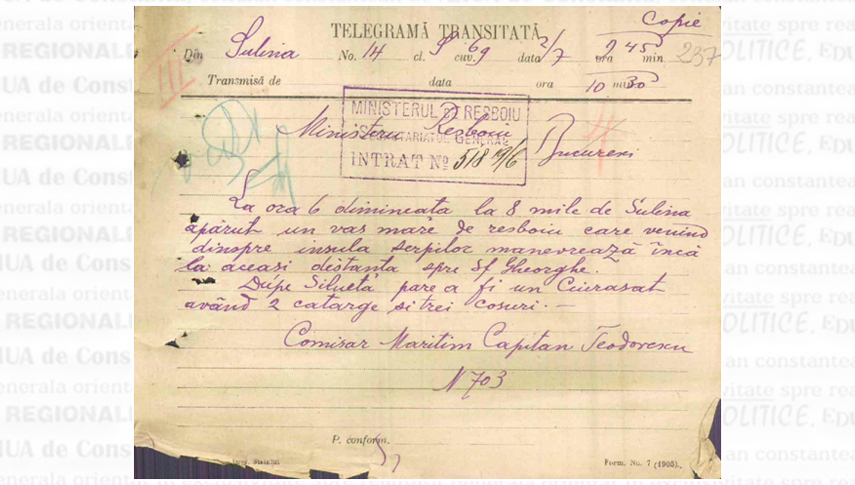 copie
TELEGRAMĂ TRANSITATĂ
Din Sulina No. 14 cl. S cuv. 69 data 2/7 ora 2 45 min 237
Transmisă de data ora 10 min 30
III
MINISTERUL DE RESBOIU
Ministeru Resboiu Bucuresi
SECRETARIATUL GENERAL
INTRAT Nº 518 19/6
La ora 6 dimineata la 8 mile de Sulina
apărut un vas mare de resboiu care venind
dinspre insula serpilor manevrează încă
la aceasi distanta spre Sf Gheorghe.
Dupe Siluetă pare a fi un Cuirasat
având 2 catarge si trei cosuri. —
Comisar Maritim Capitan Teodorescu
N 703
P. conform.
Form. No. 7 (1905).